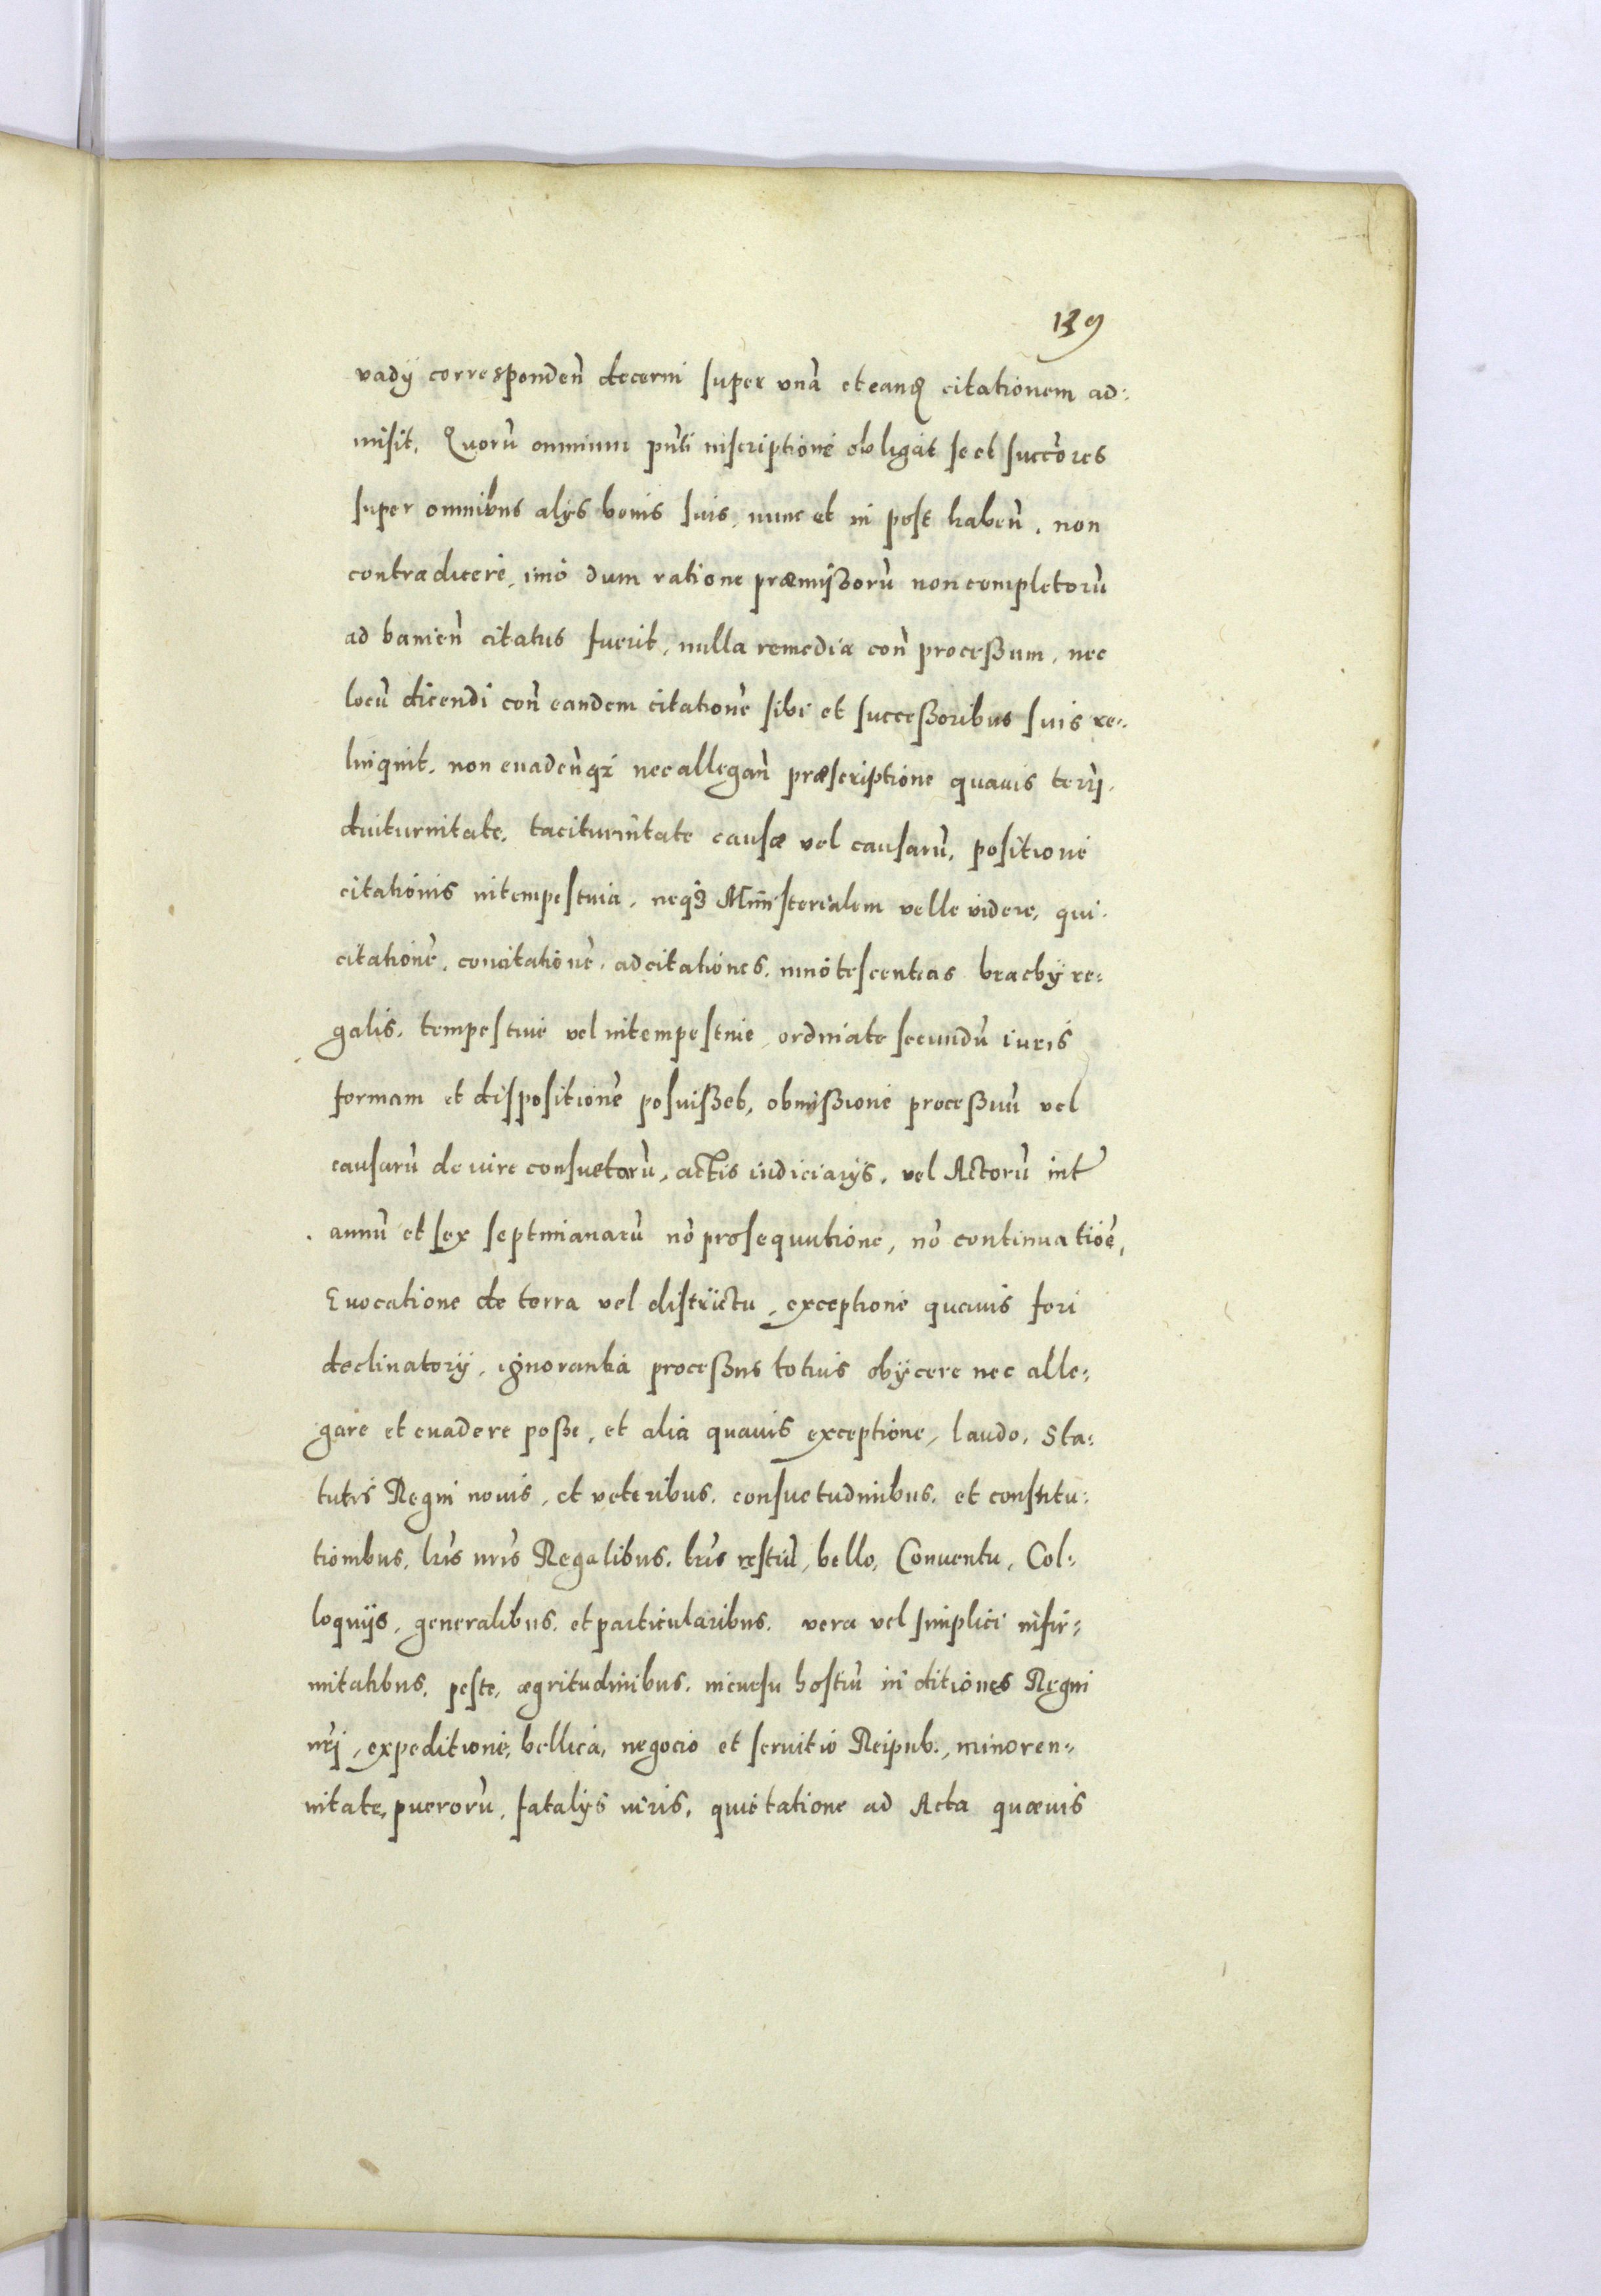 139
vadÿ corresponden̄ decerni super vnā et eand citationem ad:
misit. Quorū omnium pn̄ti inscriptione obligat se et succōres
super omnibus alÿs bonis suis, nunc et in post haben̄, non
contradicere, imo dum ratione præmißorū non completorū
ad banien̄ citatus fuerit, nulla remedia con̄ proceßum, nec
locū dicendi con̄ eandem citationē sibi et succeßoribus suis re:
linquit. non euaden̄ qz nec allegan̄ præscriptione quauis terrj.
diuturnitate. taciturnitate causæ vel causarū, positione
citationis intempestiua, neqз Ministerialem velle videre, qui
citationē, concitationē, adcitationes, innotescentias brachÿ re:
galis, tempestiue vel intempestiue, ordinate secundū iuris
formam et dispositionē posuißet, obmißione proceßuū vel
causarū de iure consuetorū, actis iudiciarÿs, vel Actorū int̄
annū et sex septimanarū nō prosequutione, nō continuatioē,
Euocatione de terra vel districtu, exceptione quauis fori
declinatorÿ, ignorantia proceßus totius obÿcere nec alle:
gare et euadere poße, et alia quauis exceptione, laudo, Sta:
tutis Regni nouis, et veteribus, consuetudinibus, et constitu:
tionibus, lr̄is nr̄is Regalibus, lr̄is restiū, bello, Conuentu, Col:
loquÿs, generalibus, et particularibus, vera vel simplici infir:
mitatibus, peste, ægritudinibus, incursu hostiū in ditiones Regni
nr̄j, expeditione, bellica, negocio et seruitio Reipub., minoren:
nitate, puerorū, fatalÿs iuris, quietatione ad Acta quæuis